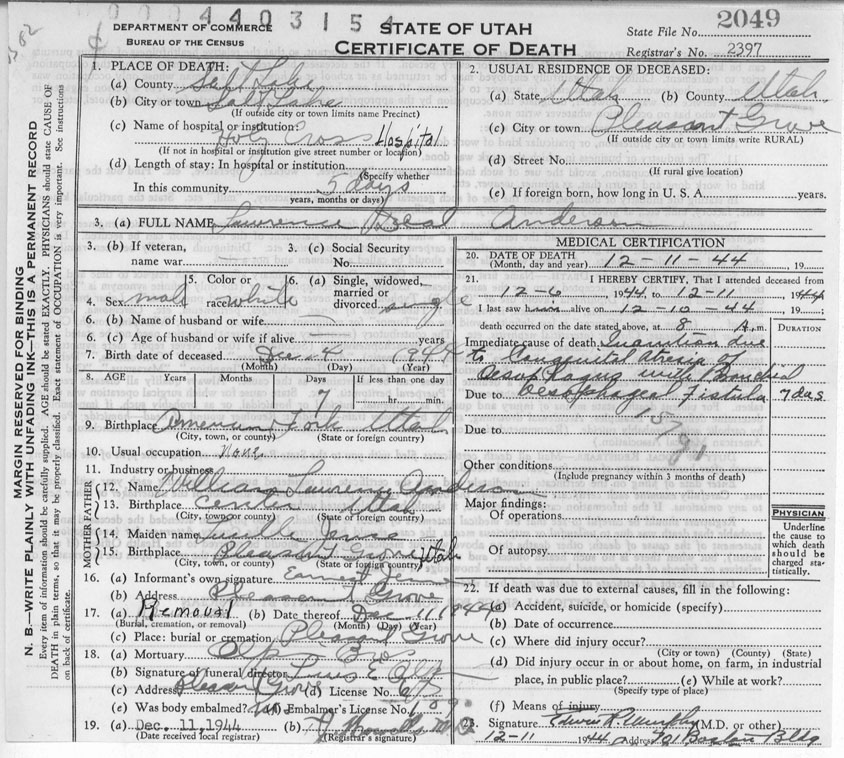 0004403154
2049
DEPARTMENT OF COMMERCE
BUREAU OF THE CENSUS
STATE OF UTAH
CERTIFICATE OF DEATH
State File No.
Registrar's No. 2397
MARGIN RESERVED FOR BINDING
N. B.—WRITE PLAINLY WITH UNFADING INK—THIS IS A PERMANENT RECORD
Every item of information should be carefully supplied. AGE should be stated EXACTLY. PHYSICIANS should state CAUSE OF
DEATH in plain terms, so that it may be properly classified. Exact statement of OCCUPATION is very important. See instructions
on back of certificate.
1. PLACE OF DEATH:
(a) County Salt Lake
(b) City or town Salt Lake
(If outside city or town limits name Precinct)
(c) Name of hospital or institution:
Holy Cross Hospital
(If not in hospital or institution give street number or location)
(d) Length of stay: In hospital or institution
(Specify whether
In this community 5 days
years, months or days)
2. USUAL RESIDENCE OF DECEASED:
(a) State Utah (b) County Utah
(c) City or town Pleasant Grove
(If outside city or town limits write RURAL)
(d) Street No.
(If rural give location)
(e) If foreign born, how long in U. S. A. years.
3. (a) FULL NAME Lawrence Anderson
3. (b) If veteran,
name war
3. (c) Social Security
No.
4. Sex male
5. Color or
race white
6. (a) Single, widowed,
married or
divorced single
6. (b) Name of husband or wife
6. (c) Age of husband or wife if alive years
7. Birth date of deceased Dec 4 1944
(Month) (Day) (Year)
8. AGE Years Months Days If less than one day
7 hr. min.
9. Birthplace American Fork Utah
(City, town, or county) (State or foreign country)
10. Usual occupation None
11. Industry or business
FATHER
12. Name William Lawrence Anderson
13. Birthplace Utah
(City, town, or county) (State or foreign country)
MOTHER
14. Maiden name Lucille
15. Birthplace Pleasant Grove Utah
(City, town, or county) (State or foreign country)
16. (a) Informant's own signature
(b) Address Pleasant Grove
17. (a) Removal (b) Date thereof Dec 11 1944
(Burial, cremation, or removal) (Month) (Day) (Year)
(c) Place: burial or cremation Pleasant Grove
18. (a) Mortuary
(b) Signature of funeral director
(c) Address Pleasant Grove (d) License No.
(e) Was body embalmed? Embalmer's License No.
19. (a) Dec. 11, 1944 (b)
(Date received local registrar) (Registrar's signature)
MEDICAL CERTIFICATION
20. DATE OF DEATH
(Month, day and year) 12-11-44 19
21. I HEREBY CERTIFY, That I attended deceased from
12-6 1944, to 12-11 1944
I last saw h alive on 12-10-44 19 ;
death occurred on the date stated above, at 8 A. m.
DURATION
Immediate cause of death Inanition due
to Congenital atresia of
Oesophagus with Bronchial
Due to Oesophageal Fistula 7 das
Due to
Other conditions
(Include pregnancy within 3 months of death)
Major findings:
Of operations
Of autopsy
PHYSICIAN
Underline
the cause to
which death
should be
charged sta-
tistically.
22. If death was due to external causes, fill in the following:
(a) Accident, suicide, or homicide (specify)
(b) Date of occurrence
(c) Where did injury occur?
(City or town) (County) (State)
(d) Did injury occur in or about home, on farm, in industrial
place, in public place? (e) While at work?
(Specify type of place)
(f) Means of injury
23. Signature Edwin R. Murphy (M.D. or other)
12-11 1944 Address 701 Boston Bldg